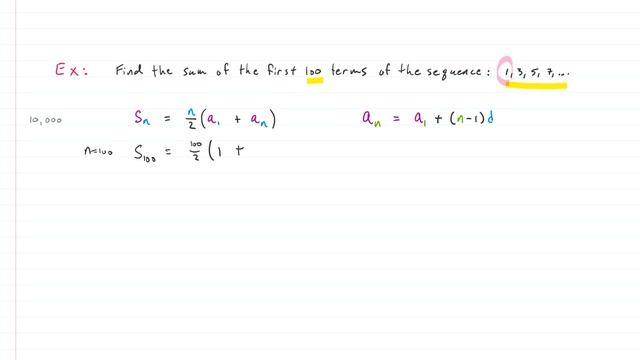 Ex: Find the sum of the first 100 terms of the sequence: 1, 3, 5, 7, ...
10,000 Sₙ = n/2 (a₁ + aₙ) aₙ = a₁ + (n-1)d
n=100 S₁₀₀ = 100/2 (1 +